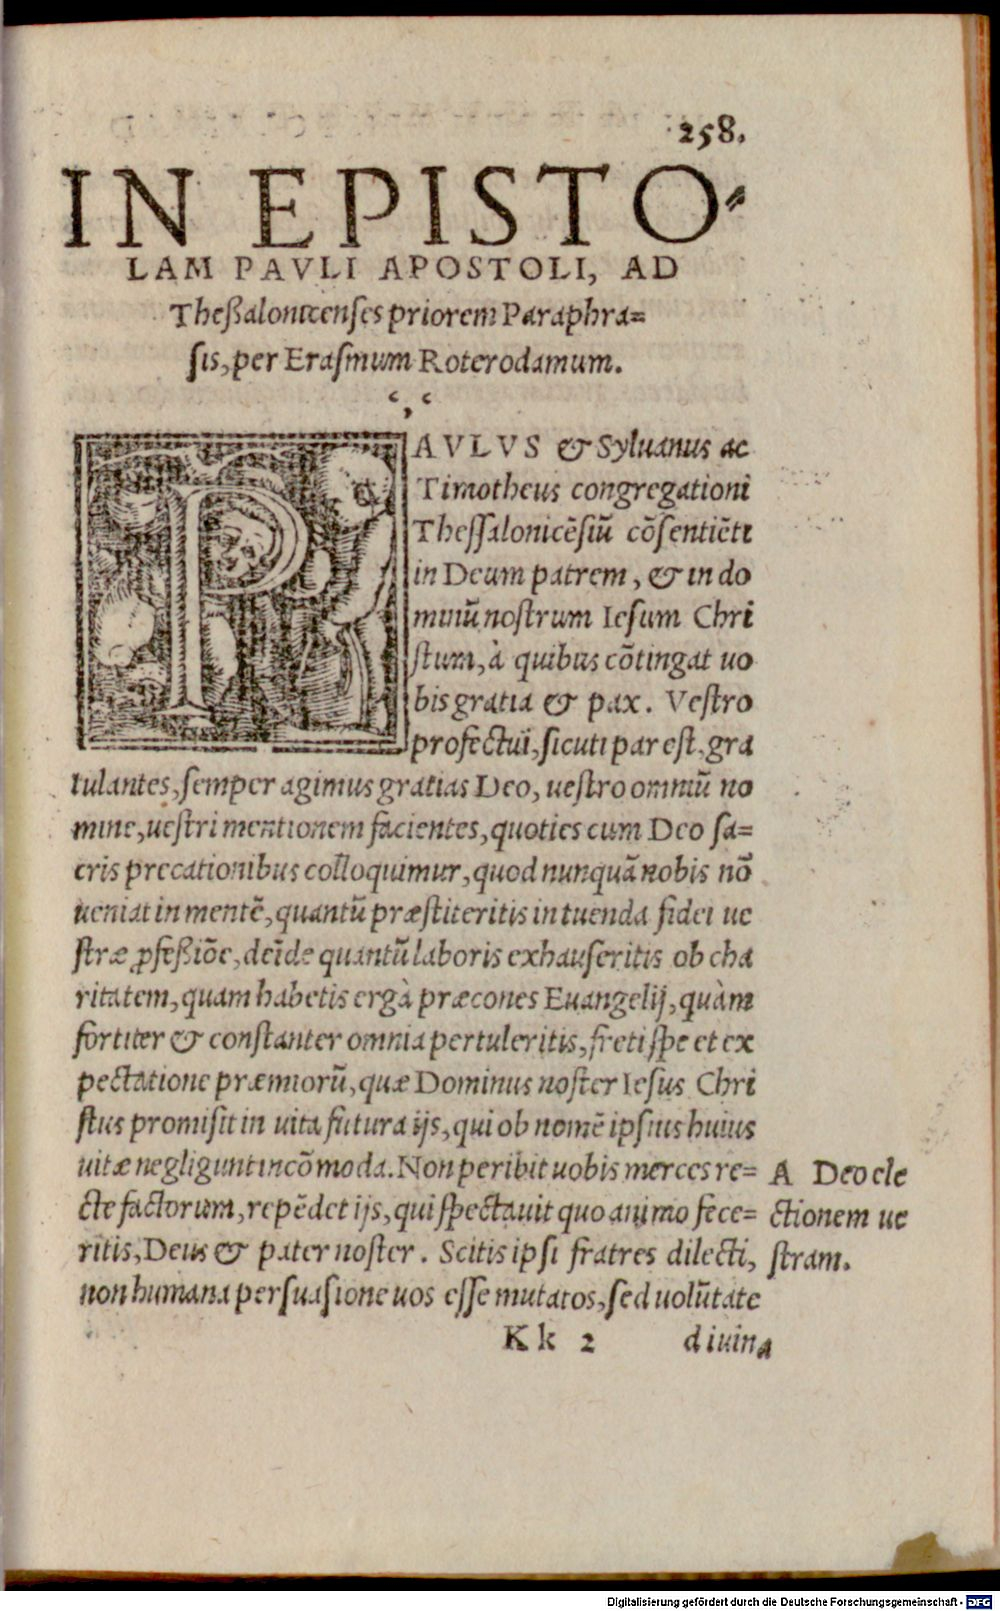 258.
IN EPISTO⸗
LAM PAVLI APOSTOLI, AD
Theßalonicenses priorem Paraphra=
sis, per Erasmum Roterodamum.
PAVLVS & Syluanus ac
Timotheus congregationi
Thessalonicēsiū cōsentiēti
in Deum patrem, & in do
minū nostrum Iesum Chri
stum, à quibus cōtingat uo
bis gratia & pax. Vestro
profectui, sicuti par est, gra
tulantes, semper agimus gratias Deo, uestro omniū no
mine, uestri mentionem facientes, quoties cum Deo sa=
cris precationibus colloquimur, quod nunquā nobis nō
ueniat in mentē, quantū præstiteritis in tuenda fidei ue
stræ ꝓfeßiōe, deīde quantū laboris exhauseritis ob cha
ritatem, quam habetis ergà præcones Euangelij, quàm
fortiter & constanter omnia pertuleritis, freti spe et ex
pectatione præmiorū, quæ Dominus noster Iesus Chri
stus promisit in uita futura ijs, qui ob nomē ipsius huius
uitæ negligunt incōmoda. Non peribit uobis merces re=
cte factorum, repēdet ijs, qui spectauit quo animo fece=
ritis, Deus & pater noster. Scitis ipsi fratres dilecti,
non humana persuasione uos esse mutatos, sed uolūtate
A Deo ele
ctionem ue
stram.
Kk 2 diuina
Digitalisierung gefördert durch die Deutsche Forschungsgemeinschaft - DFG